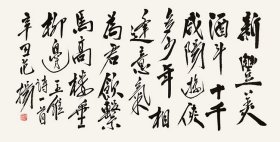 新豐美
酒斗十千
咸陽遊俠
多少年相
逢意氣
為君飲繫
馬高樓垂
柳邊 王維
詩一首
辛丑